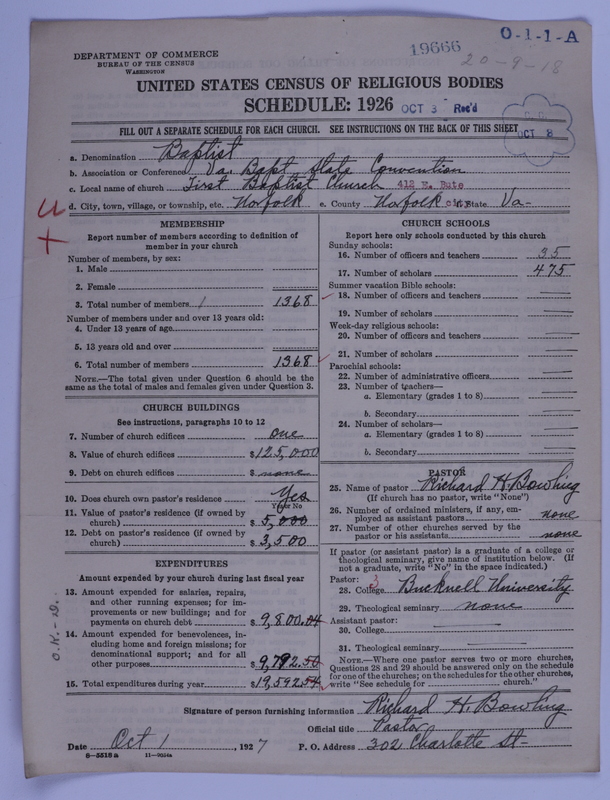 O-1-1-A
19666
20-9-18
DEPARTMENT OF COMMERCE
BUREAU OF THE CENSUS
WASHINGTON
UNITED STATES CENSUS OF RELIGIOUS BODIES
SCHEDULE: 1926 OCT 3 Rec'd
FILL OUT A SEPARATE SCHEDULE FOR EACH CHURCH. SEE INSTRUCTIONS ON THE BACK OF THIS SHEET
OCT 8
a. Denomination Baptist
b. Association or Conference Va. Bapt State Convention
c. Local name of church First Baptist Church 412 E. Bute
d. City, town, village, or township, etc. Norfolk e. County Norfolk city State Va-
MEMBERSHIP
Report number of members according to definition of
member in your church
Number of members, by sex:
1. Male
2. Female
3. Total number of members 1368
Number of members under and over 13 years old:
4. Under 13 years of age
5. 13 years old and over
6. Total number of members 1368
NOTE.—The total given under Question 6 should be the
same as the total of males and females given under Question 3.
CHURCH BUILDINGS
See instructions, paragraphs 10 to 12
7. Number of church edifices one
8. Value of church edifices $125,000
9. Debt on church edifices $ none
10. Does church own pastor's residence Yes
Yes or No
11. Value of pastor's residence (if owned by
church) $5,000
12. Debt on pastor's residence (if owned by
church) $3,500
EXPENDITURES
Amount expended by your church during last fiscal year
13. Amount expended for salaries, repairs,
and other running expenses; for im-
provements or new buildings; and for
payments on church debt $9,800.04
14. Amount expended for benevolences, in-
cluding home and foreign missions; for
denominational support; and for all
other purposes $9,792.50
15. Total expenditures during year $19,592.54
O.K.-D.
CHURCH SCHOOLS
Report here only schools conducted by this church
Sunday schools:
16. Number of officers and teachers 35
17. Number of scholars 475
Summer vacation Bible schools:
18. Number of officers and teachers
19. Number of scholars
Week-day religious schools:
20. Number of officers and teachers
21. Number of scholars
Parochial schools:
22. Number of administrative officers
23. Number of teachers—
a. Elementary (grades 1 to 8)
b. Secondary
24. Number of scholars—
a. Elementary (grades 1 to 8)
b. Secondary
PASTOR
25. Name of pastor Richard H. Bowling
(If church has no pastor, write "None")
26. Number of ordained ministers, if any, em-
ployed as assistant pastors none
27. Number of other churches served by the
pastor or his assistants none
If pastor (or assistant pastor) is a graduate of a college or
theological seminary, give name of institution below. (If
not a graduate, write "No" in the space indicated.)
Pastor: 3
28. College Bucknell University
29. Theological seminary none
Assistant pastor:
30. College
31. Theological seminary
NOTE.—Where one pastor serves two or more churches,
Questions 28 and 29 should be answered only on the schedule
for one of the churches; on the schedules for the other churches,
write "See schedule for church."
Signature of person furnishing information Richard H. Bowling
Official title Pastor
Date Oct 1, 1927 P. O. Address 302 Charlotte St-
6—5518a 11—9034a